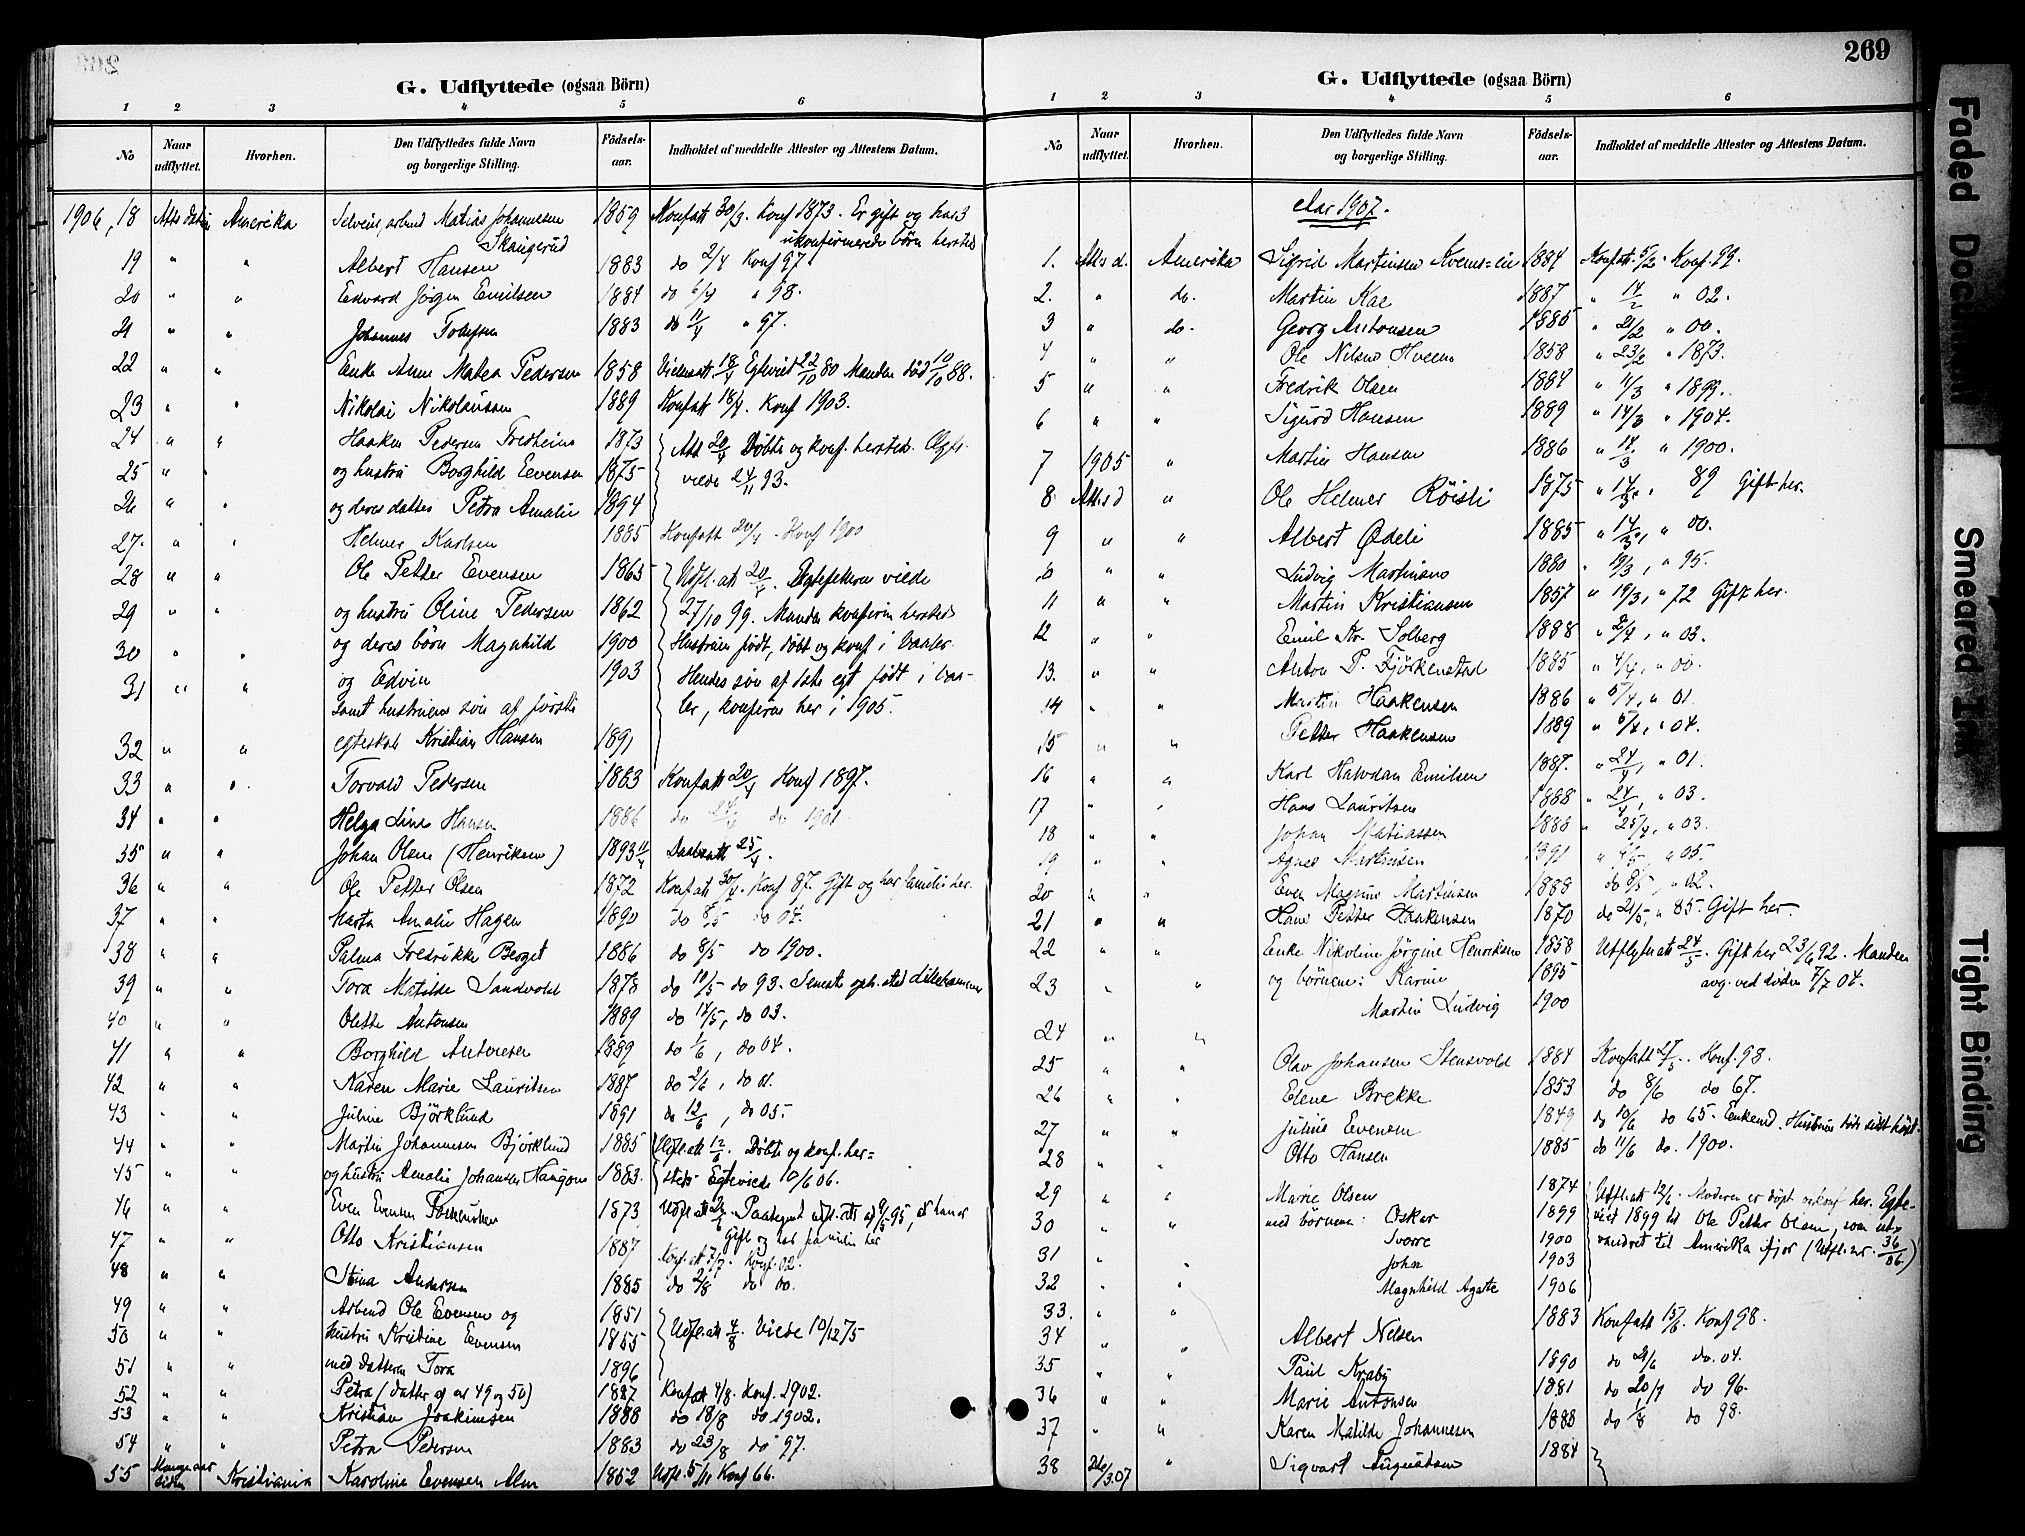 G. Udflyttede (ogsaa Börn)
1 2 3 4 5 6
No Naar udflyttet. Hvorhen. Den Udflyttedes fulde Navn og borgerlige Stilling. Födselsaar. Indholdet af meddelte Attester og Attestens Datum.
1906, 18 Amerika Selveier, arbmd Matias Johannesen 1859 Konfatt 30/3. Konf 1873. Er gift og har 3
Skaugerud ukonfirmerede børn hersteds
19 " " Albert Hansen 1883 do 2/4 Konf 97
20 " " Edvard Jørgen Emilsen 1884 do 6/4 " 98.
21 " " Johannes Tollefsen 1883 do 11/4 " 97.
22 " " Enke Anne Matea Pedersen 1858 Vielsesatt. 18/4 Egteviet 22/10 80 Manden død 10/10 88.
23 " " Nikolai Nikolaissen 1889 Konfatt 18/4. Konf 1903.
24 " " Haaken Pedersen Fredheim 1873 Att 20/4 Døbte og konf. hersteds.
25 " " og hustru Borghild Evensen 1875 viede 24/11 93.
26 " " og deres datter Petra Amalie 1894
27. " " Helmer Karlsen 1885 Konfatt 20/4. Konf 1900
28 " " Ole Petter Evensen 1863 Udfl. att 20/4. Egtefolkene viede
29 " " og hustru Oline Pedersen 1862 27/10 99. Manden konfirm hersteds
30 " " og deres børn Magnhild 1900 Hustruen født, døbt og konf. i Vaaler.
31 " " og Edvin 1903 Hendes søn af 1ste egt født i Vaa-
samt hustruens søn af første ler, konfirm her i 1905.
32 " " egteskab Kristian Hansen 1891
33 " " Torvald Pedersen 1883 Konfatt 20/4 Konf 1897.
34 " " Helga Line Hansen 1886 do 24/4 do 1901
35 " " Johan Olsen (Henriksen) 1893 11/4 Daabsatt 25/4.
36 " " Ole Petter Olsen 1872 Konf att 30/4. Konf 87. Gift og har familie her.
37 " " Marta Amalie Hagen 1890 do 8/5 do 04.
38 " " Palma Fredrikke Berget 1886 do 8/5 do 1900.
39 " " Tora Matilde Sandvold 1878 do 10/5 do 93. Seneste oph. sted Lillehammer
40 " " Olette Antonsen 1889 do 14/5, do 03.
41 " " Borghild Andresen 1889 do 1/6, do 04.
42 " " Karen Marie Lauritsen 1887 do 2/6, do 01.
43 " " Juline Björklund 1891 do 12/6, do 05.
44 " " Martin Johannesen Björklund 1885 Udfl. att 12/6. Døbte og konf. her=
45 " " og hustru Amalie Johansen Haugom 1883. steds Egteviede 10/6 06.
46 " " Even Evensen 1873 Udfl. att
Gift og har familie her
47 " " Otto Kristiansen 1887 Konf. att 7/7. Konf. 02.
48 " " Stina Andersen 1885 do 2/8 do 00.
49 " " Arbmd Ole Evensen og 1851
50 " " hustru Kristine Evensen 1855 Udfl. att 4/8. Viede 10/12 75
51 " " med datteren Tora 1896
52 " " Petra (datter af nr 49 og 50) 1887 Konf att 4/8. Konf. 1902.
53 " " Kristian Joakimsen 1888 do 18/8 do 1902.
54 " " Petra Pedersen 1883 do 23/8 do 97.
55 Mange aar siden Kristiania Karoline Evensen Alm 1852 Udfl. 5/11 Konf 66.
269
G. Udflyttede (ogsaa Börn)
1 2 3 4 5 6
No Naar udflyttet. Hvorhen. Den Udflyttedes fulde Navn og borgerlige Stilling. Födselsaar. Indholdet af meddelte Attester og Attestens Datum.
Aar 1907.
1. Atts d. Amerika Sigrid Martinsen 1884 Konfatt. 5/2. Konf. 99.
2. " do. Martin Kae 1887 " 14/2 " 02.
3 " do. Georg Antonsen 1885 " 21/2 " 00.
4 " " Ole Nilsen Hveem 1858 " 23/2 " 1873.
5 " " Fredrik Olsen 1884 " 11/3 " 1899.
6 " " Sigurd Hansen 1889 " 14/3 " 1904.
7 1905 " Martin Hansen 1886 " 14/3 " 1900.
8. Atts d " Ole Helmer Röisli 1875 " 14/3, " 89 Gift her.
9 " " Albert Ødeli 1885 " 14/3, " 00.
10 " " Ludvig Martinsen 1880 " 19/3, " 95.
11 " " Martin Kristiansen 1857 " 19/3, " 72 Gift her.
12 " " Emil Kr. Solberg 1888 " 2/4, " 03.
13. " " Anton P. Fjörkenstad 1885 " 4/4, " 00.
14 " " Martin Haakensen 1886 " 5/4, " 01.
15 " " Petter Haakensen 1889 " 5/4, " 04.
16 " " Karl Halvdan Emilsen 1887. " 24/4, " 01.
17 " " Hans Lauritsen 1888 " 24/4, " 03.
18 " " Johan Matiassen 1888 " 25/4, " 03.
19 " " Agnes Martinsen 1891 " 4/5, " 05.
20 " " Even Magnus Martinsen 1888 do 8/5, " 02.
21 " " Hans Petter Haakensen 1870 do 21/5, " 85. Gift her.
22 " " Enke Nikoline Jörgine Henriksen 1858 Utflytn att 24/5. Gift her 23/6 92. Manden
23 " " og børnene: Karine 1895 avg. ved døden 7/7 04.
24 " " Martin Ludvig 1900
25 " " Olav Johansen Stensvold 1884 Konfatt 27/5. Konf. 98.
26 " " Elene Brekke 1853 do 8/6 do 67.
27 " " Julius Evensen 1849 do 10/6 do 65. Enkemd. Hustruen døde sidst høst.
28 " " Otto Hansen 1885 do 11/6 do. 1900.
29 " " Marie Olsen 1874 Utfl. att 12/6. Moderen er døpt her. Egte-
30 " " med børnene: Oskar 1899 viet 1899 til Ole Petter Olsen, som ut-
31 " " Sverre 1900 vandret til Amerika ifjor (Utfl. nr. 36/06.)
32 " " John 1903
33. " " Magnhild Agate 1906
34 " " Albert Nilsen 1883 Konfatt 15/6. Konf 98.
35 " " Paul Kraby 1890 do 21/6 do. 04.
36 " " Marie Antonsen 1881 do 20/7 do 96.
37 " " Karen Matilde Johannesen 1883 do 1/8 do 98.
38 26/3.07 " Sigvart Augustsen 1884
Faded Document
Smeared Ink
Tight Binding